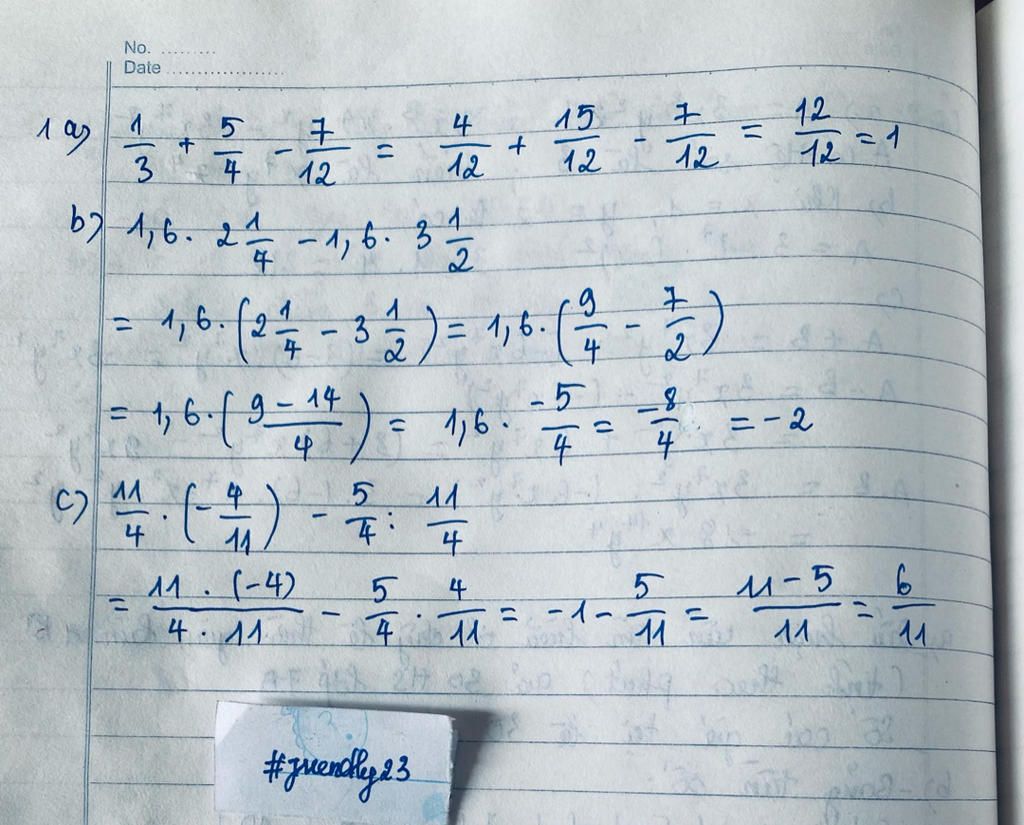 No. .........
Date ..................
1 a) 1/3 + 5/4 - 7/12 = 4/12 + 15/12 - 7/12 = 12/12 = 1
b) 1,6 . 2 1/4 - 1,6 . 3 1/2
= 1,6 . (2 1/4 - 3 1/2) = 1,6 . (9/4 - 7/2)
= 1,6 . (9 - 14/4) = 1,6 . -5/4 = -8/4 = -2
c) 11/4 . (-4/11) - 5/4 : 11/4
= 11 . (-4)/4 . 11 - 5/4 . 4/11 = -1 - 5/11 = 11 - 5/11 = 6/11